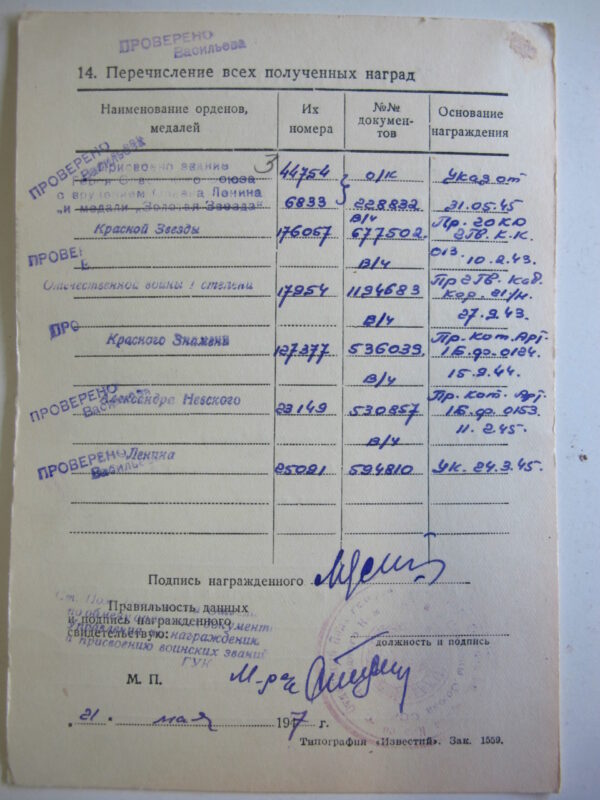 ПРОВЕРЕНО
Васильева
14. Перечисление всех полученных наград
Наименование орденов, медалей
Их номера
№№ документов
Основание награждения
ПРОВЕРЕНО
Васильева
Присвоено звание
Героя Советского Союза
с вручением Ордена Ленина
„и медали „Золотая Звезда"
3
44754
6833
о/к
228832
Указ от
31.05.45
Красной Звезды
176067
В/ч
677502.
Пр. 20 КЮ
2 Гв. К.К.
013. 10.2.43.
ПРОВЕ
Отечественной войны I степени
17954
В/ч
1194683
Пр 2 Гв. Кав.
Кор. 21/н.
27.9.43.
ПРО
Красного Знамени
127377
В/ч
536039.
15.9.44.
ПРОВЕРЕНО
Васильева
Александра Невского
23149
В/ч
530857
11.2.45.
ПРОВЕРЕНО
Васильева
Ленина
25091
В/ч
594810
Ук. 24.3.45.
Подпись награжденного
Правильность данных
и подпись награжденного
свидетельствую:
Управления по награждениям
и присвоению воинских званий
ГУК
должность и подпись
М. П.
М-р а/с
„ 21 „ мая 1947 г.
Типография «Известий». Зак. 1559.